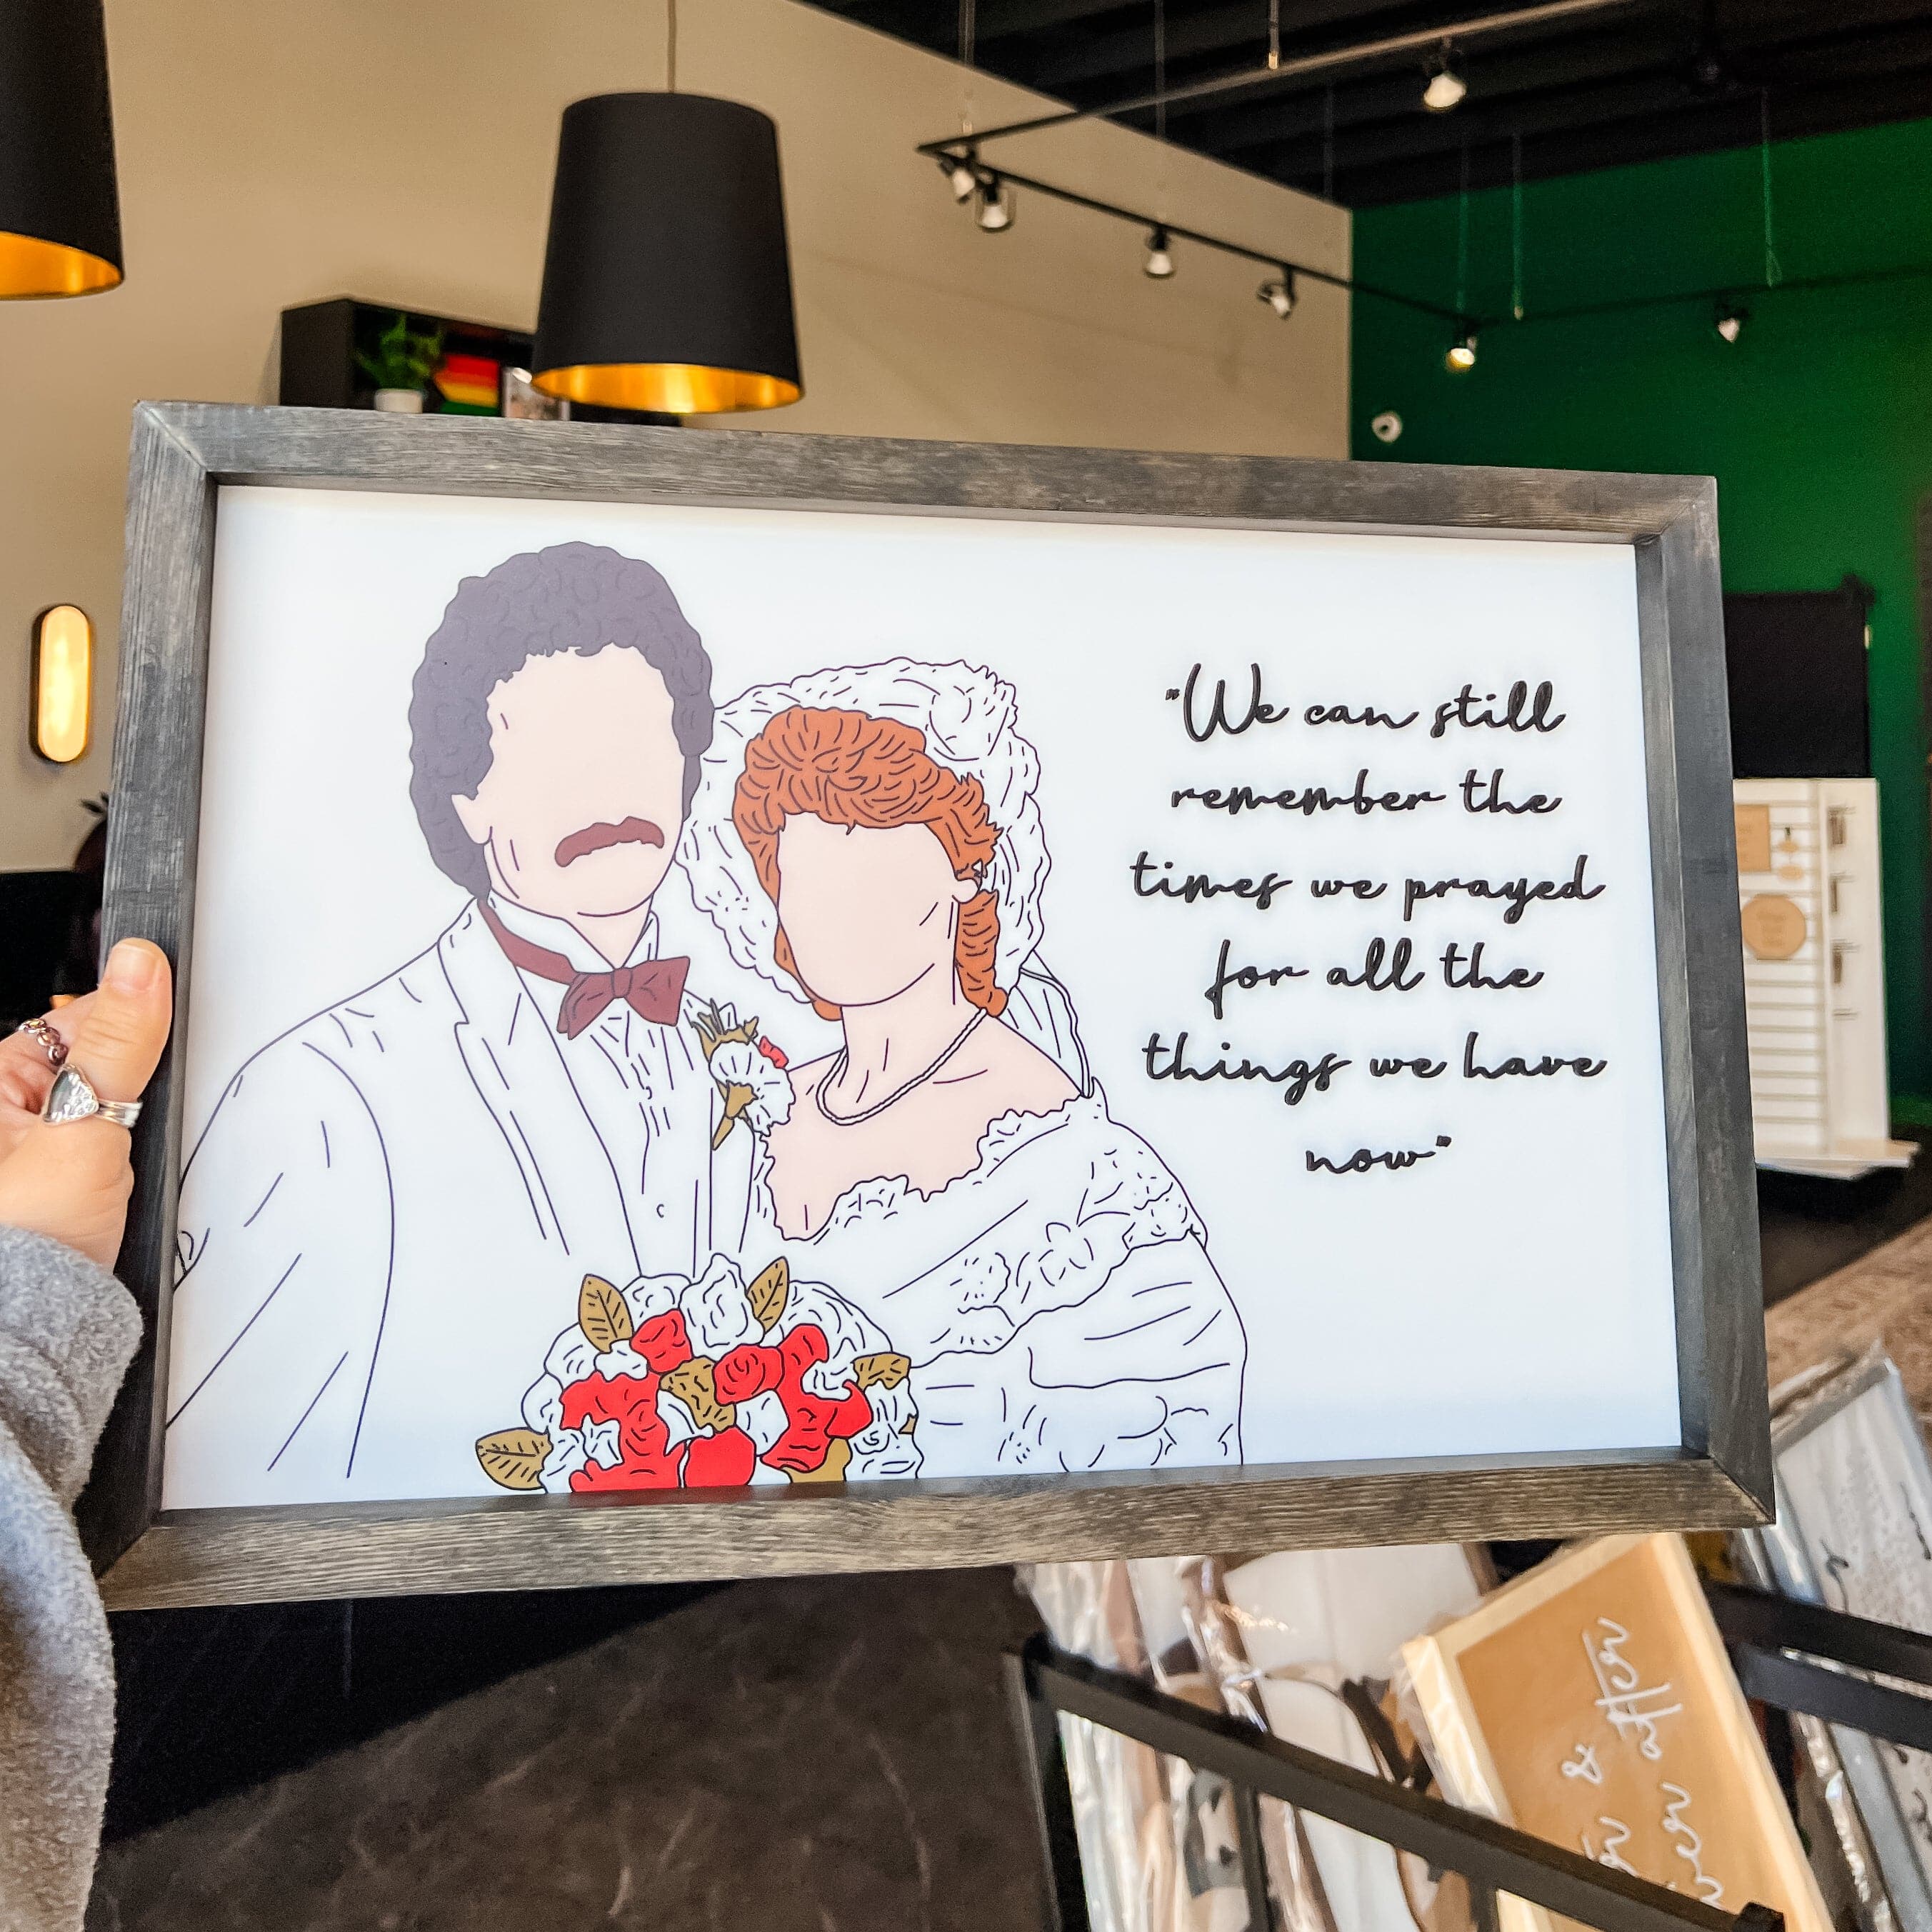 "We can still
remember the
times we prayed
for all the
things we have
now"
& 
after